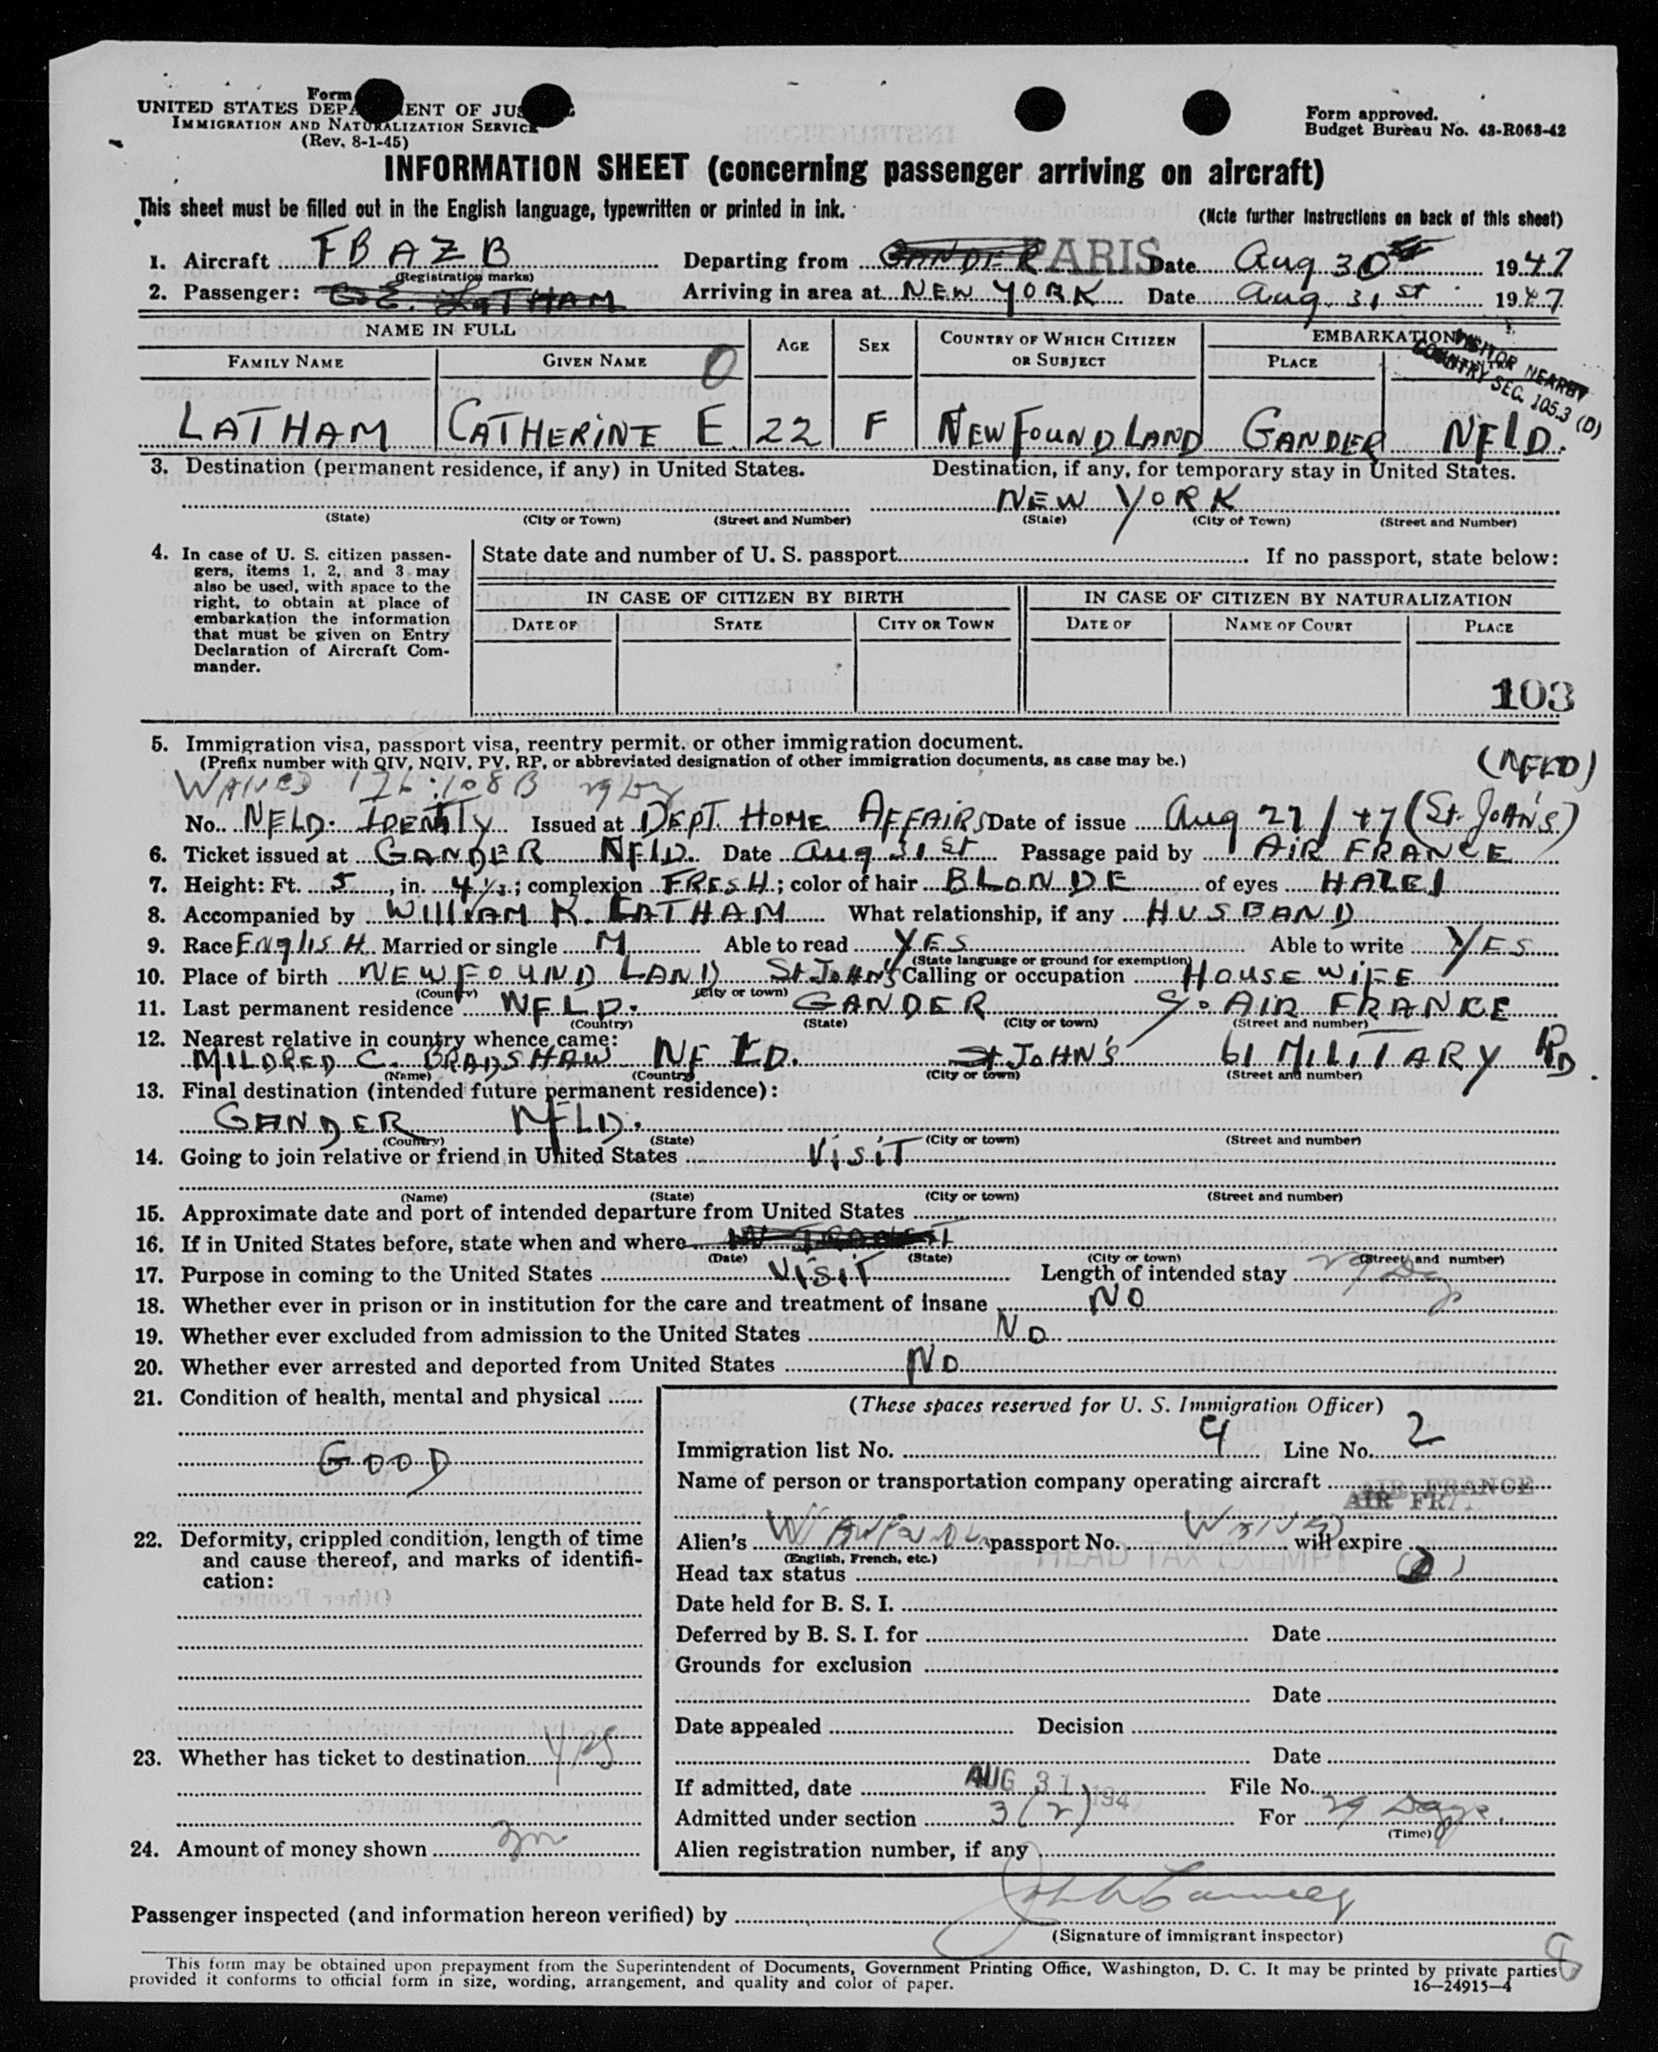 Form
UNITED STATES DEPA ENT OF JUS E
IMMIGRATION AND NATURALIZATION SERVICE
(Rev. 8-1-45)
Form approved.
Budget Bureau No. 43-R068-42
INFORMATION SHEET (concerning passenger arriving on aircraft)
This sheet must be filled out in the English language, typewritten or printed in ink.
(Note further instructions on back of this sheet)
1. Aircraft FBAZB Departing from GANDER PARIS Date Aug 30 1947
(Registration marks)
2. Passenger: C.E. LATHAM Arriving in area at NEW YORK Date Aug. 31st 1947
NAME IN FULL AGE SEX COUNTRY OF WHICH CITIZEN OR SUBJECT EMBARKATION
VISITOR NEARBY
COUNTRY SEC. 105.3 (D)
FAMILY NAME GIVEN NAME O PLACE
LATHAM CATHERINE E. 22 F NEWFOUNDLAND GANDER NFLD.
3. Destination (permanent residence, if any) in United States. Destination, if any, for temporary stay in United States.
NEW YORK
(State) (City or Town) (Street and Number) (State) (City of Town) (Street and Number)
4. In case of U. S. citizen passengers, items 1, 2, and 3 may also be used, with space to the right, to obtain at place of embarkation the information that must be given on Entry Declaration of Aircraft Commander.
State date and number of U. S. passport If no passport, state below:
IN CASE OF CITIZEN BY BIRTH IN CASE OF CITIZEN BY NATURALIZATION
DATE OF STATE CITY OR TOWN DATE OF NAME OF COURT PLACE
103
5. Immigration visa, passport visa, reentry permit, or other immigration document.
(Prefix number with QIV, NQIV, PV, RP, or abbreviated designation of other immigration documents, as case may be.) (NFLD)
WAIVED 176.108B 29 Dy
No. NFLD. IDENTITY Issued at DEPT. HOME AFFAIRS Date of issue Aug 27/47 (St. JOHN'S)
6. Ticket issued at GANDER NFLD. Date Aug 31st Passage paid by AIR FRANCE
7. Height: Ft. 5, in. 4 1/2; complexion FRESH; color of hair BLONDE of eyes HAZEL
8. Accompanied by WILLIAM K. LATHAM What relationship, if any HUSBAND
9. Race ENGLISH Married or single M Able to read YES Able to write YES
(State language or ground for exemption)
10. Place of birth NEWFOUNDLAND St JOHN'S Calling or occupation HOUSEWIFE
(Country) (City or town)
11. Last permanent residence NFLD. GANDER c/o AIR FRANCE
(Country) (State) (City or town) (Street and number)
12. Nearest relative in country whence came:
MILDRED C. BRADSHAW NFLD. St JOHN'S 61 MILITARY RD.
(Name) (Country) (City or town) (Street and number)
13. Final destination (intended future permanent residence):
GANDER NFLD.
(Country) (State) (City or town) (Street and number)
14. Going to join relative or friend in United States VISIT
(Name) (State) (City or town) (Street and number)
15. Approximate date and port of intended departure from United States
16. If in United States before, state when and where IN TRANSIT
(Date) (State) (City or town) (Street and number)
17. Purpose in coming to the United States VISIT Length of intended stay 29 Dy
18. Whether ever in prison or in institution for the care and treatment of insane NO
19. Whether ever excluded from admission to the United States NO
20. Whether ever arrested and deported from United States NO
21. Condition of health, mental and physical
GOOD
22. Deformity, crippled condition, length of time and cause thereof, and marks of identification:
23. Whether has ticket to destination yes
24. Amount of money shown
(These spaces reserved for U. S. Immigration Officer)
Immigration list No. 4 Line No. 2
Name of person or transportation company operating aircraft AIR FRANCE
AIR FR
Alien's passport No. Waived will expire
(English, French, etc.)
HEAD TAX EXEMPT
Head tax status
Date held for B. S. I.
Deferred by B. S. I. for Date
Grounds for exclusion
Date
Date appealed Decision
Date
If admitted, date AUG 31 194 File No.
Admitted under section 3(2) For 29 Days
(Time)
Alien registration number, if any
Passenger inspected (and information hereon verified) by
(Signature of immigrant inspector)
8
This form may be obtained upon prepayment from the Superintendent of Documents, Government Printing Office, Washington, D. C. It may be printed by private parties
provided it conforms to official form in size, wording, arrangement, and quality and color of paper.
16—24915-4